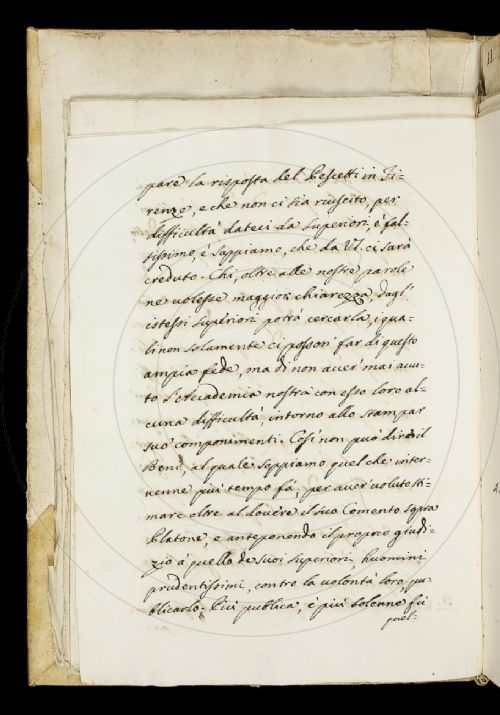 pare la risposta del Pescetti in Fi-
renze, e che non ci sia riuscito, per
difficultà dateci da Superiori, è fal-
sissimo, e sappiamo, che da Vl. ci sarà
creduto. Chi, oltre alle nostre parole
ne volesse maggior chiarezza, dagl'
istessi Superiori potrà cercarla, i qua-
li non solamente ci posson far di questo
ampia fede, ma di non aver mai avu-
to l'Accademia nostra con esso loro al-
cuna difficultà, intorno allo stampar
suo' componimenti. Così non può dire il
Beni, al quale sappiamo quel che inter-
venne più tempo fa, per aver voluto sti-
mare oltre al dovere il suo Comento sopra
Platone, e anteponendo il proprio giudi-
zio à quello de suoi Superiori, huomini
prudentissimi, contro la volontà loro, pu-
blicarlo. Più publica, e più solenne fù
quel-